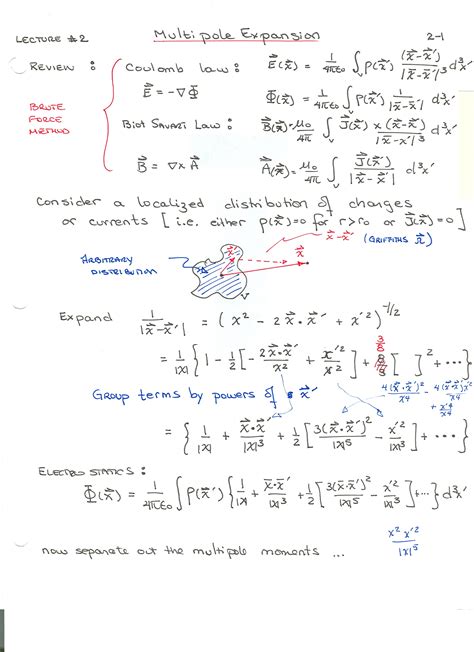 LECTURE #2 Multipole Expansion 2-1
REVIEW : Coulomb law : E⃗(x⃗) = 1/4πε₀ ∫ᵥ ρ(x⃗') (x⃗-x⃗')/|x⃗-x⃗'|³ d³x'
E⃗ = -∇Φ Φ(x⃗) = 1/4πε₀ ∫ᵥ ρ(x⃗') 1/|x⃗-x⃗'| d³x'
BRUTE
FORCE
METHOD
Biot Savart Law : B⃗(x⃗) = μ₀/4π ∫ᵥ J⃗(x⃗') × (x⃗-x⃗')/|x⃗-x⃗'|³ d³x'
B⃗ = ∇×A⃗ A⃗(x⃗) = μ₀/4π ∫ᵥ J⃗(x⃗')/|x⃗-x⃗'| d³x'
Consider a localized distribution of charges
or currents [i.e. either ρ(x⃗)=0 for r>r₀ or J⃗(x⃗)=0]
x⃗-x⃗' (GRIFFITHS
ARBITRARY
DISTRIBUTION
x⃗' x⃗
V
Expand 1/|x⃗-x⃗'| = (x² - 2x⃗·x⃗' + x'²)^-1/2
= 1/|x| {1 - 1/2[-2x⃗·x⃗'/x² + x'²/x²] + 3/8 [ ]² + ···}
Group terms by powers of x⃗' 4(x⃗·x⃗')²/x⁴ - 4(x⃗·x⃗')x'²/x⁴ + x'⁴/x⁴
= {1/|x| + x⃗·x⃗'/|x|³ + 1/2[3(x⃗·x⃗')²/|x|⁵ - x'²/|x|³] + ···}
ELECTROSTATICS :
Φ(x⃗) = 1/4πε₀ ∫ρ(x⃗'){1/|x| + x⃗·x⃗'/|x|³ + 1/2[3(x⃗·x⃗')²/|x|⁵ - x'²/|x|³] + ···} d³x'
x² x'²/|x|⁵
now separate out the multipole moments ...